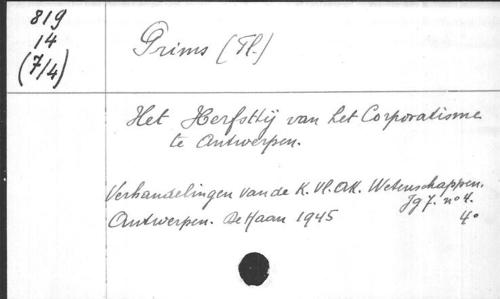 819
14
(7/4)
Prims (Fl.)
Het Herfsttij van het Corporatisme
te Antwerpen.
Verhandelingen van de K. Vl. Ak. Wetenschappen.
Jg 7. nº 4.
Antwerpen. De Haan 1945
4º